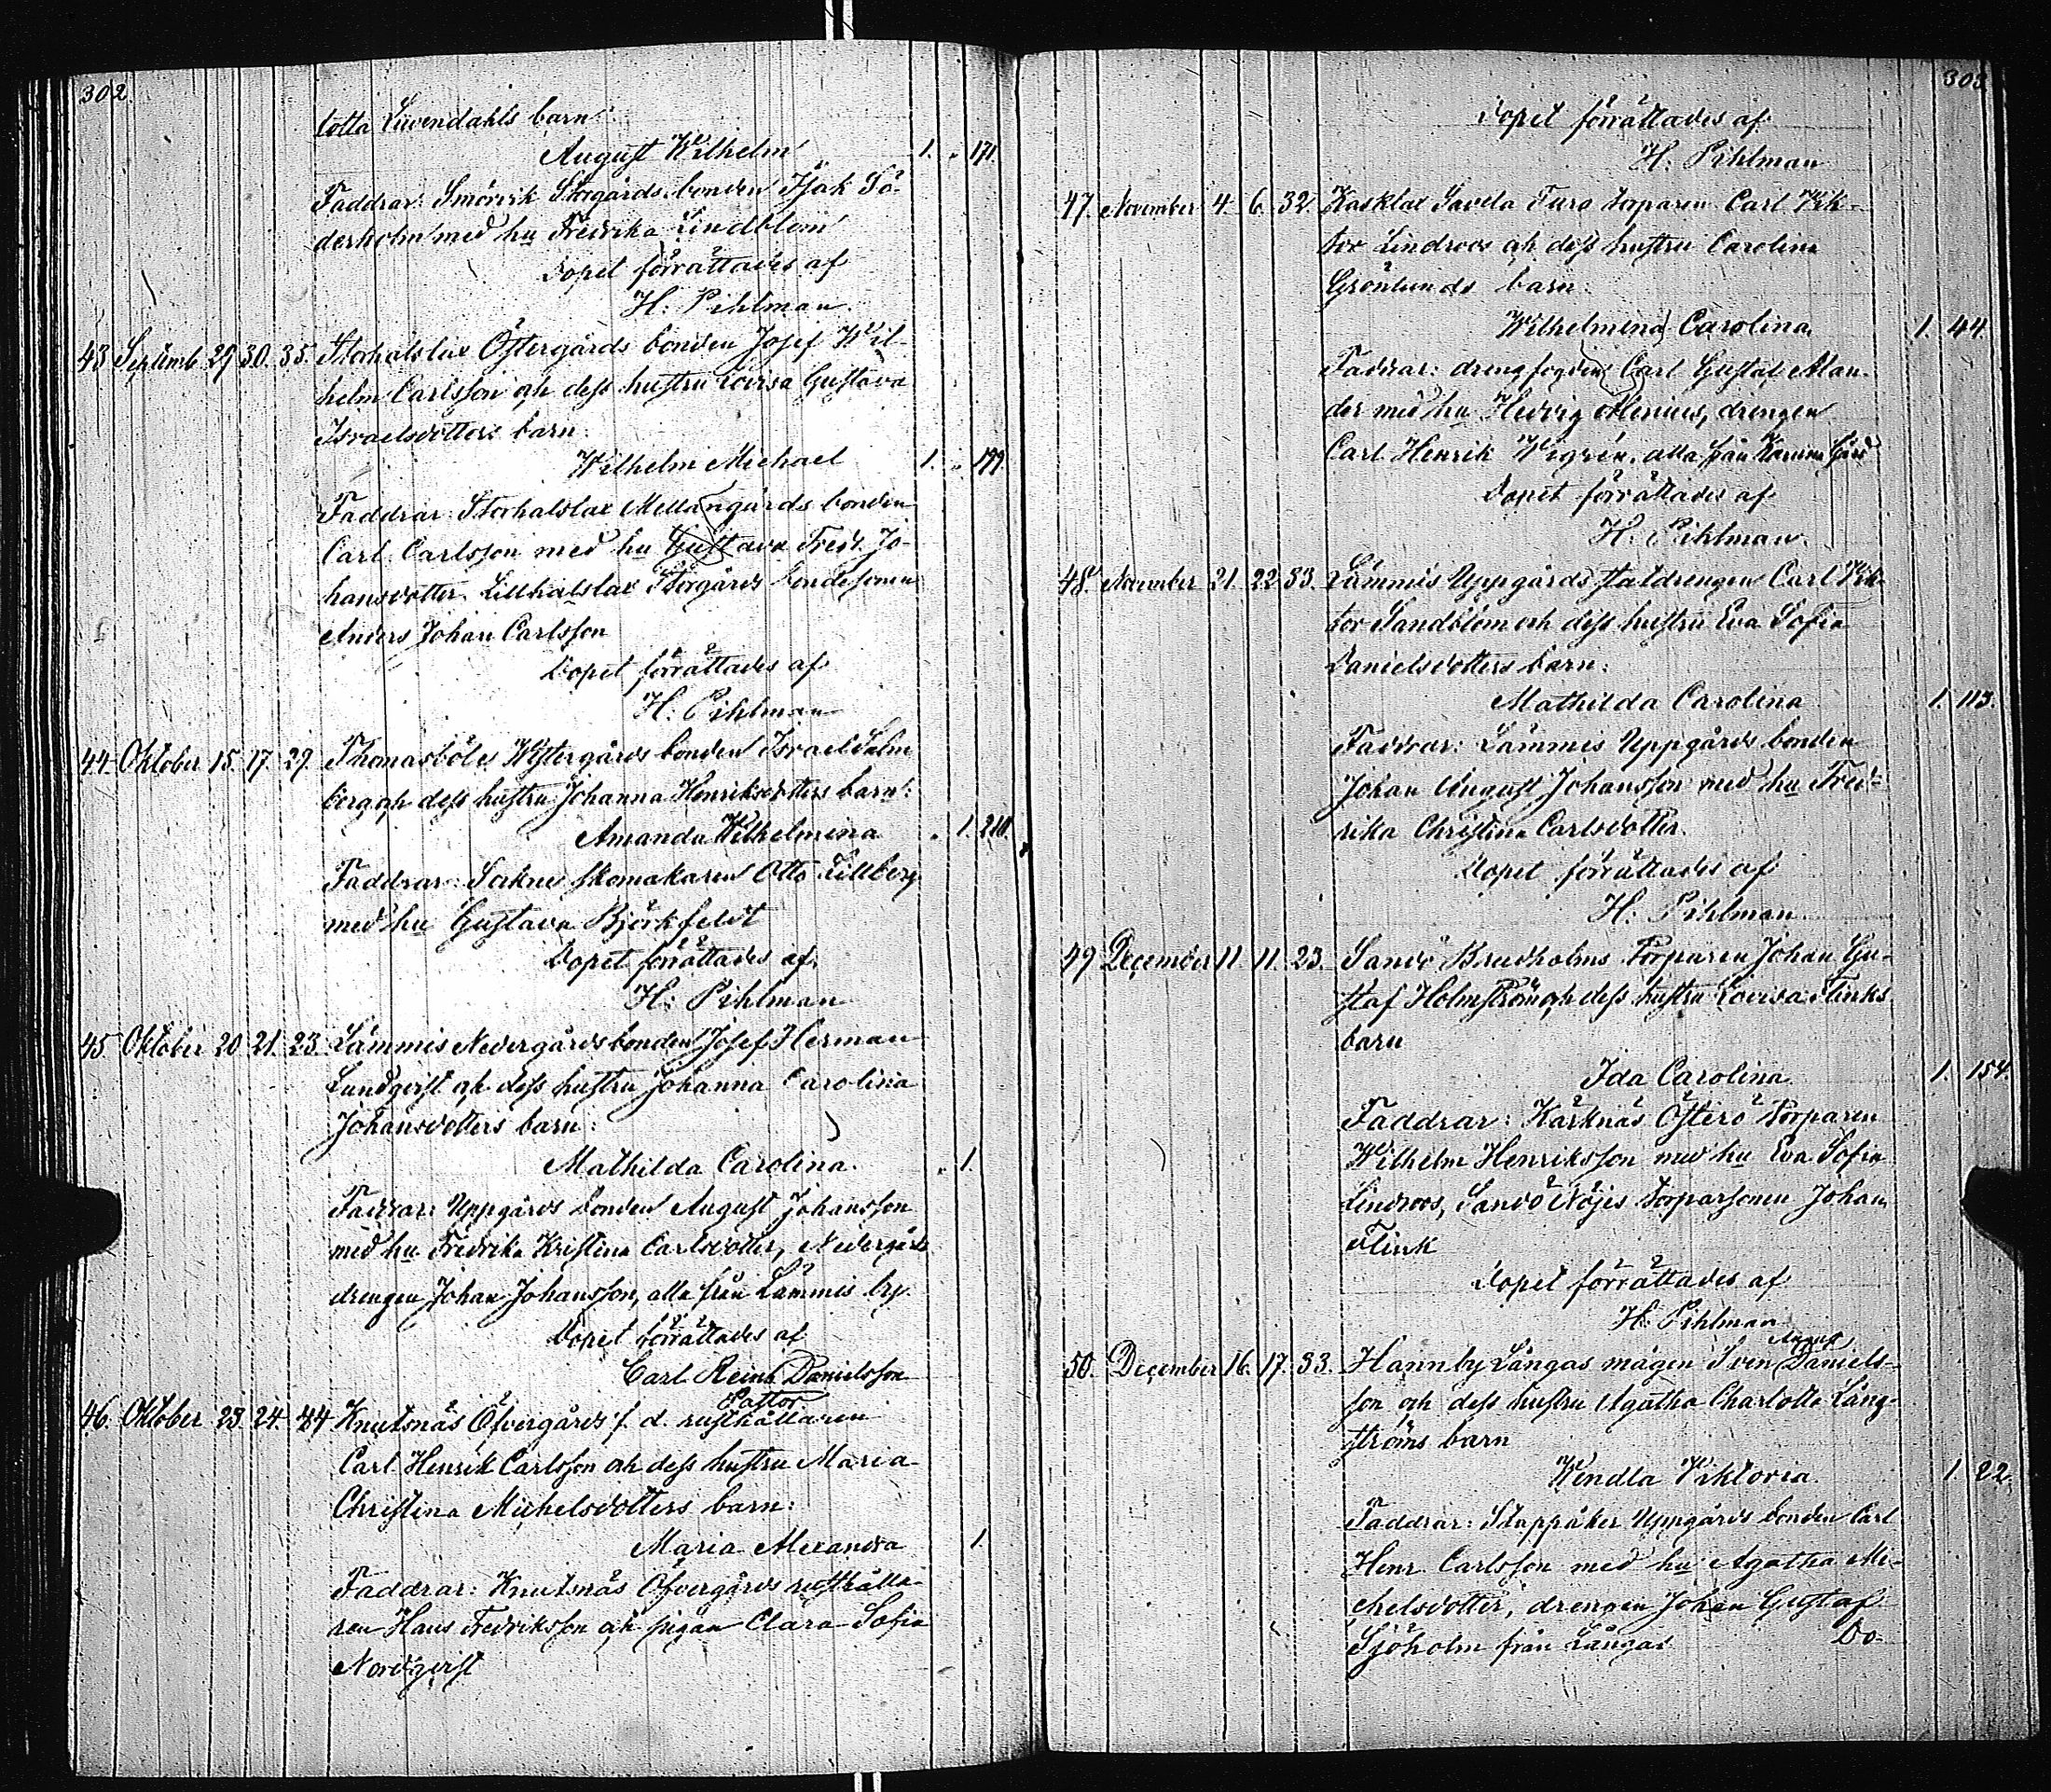 302.
lotta Liwendahls barn:
August Wilhelm 1. " 171.
Faddrar: Smörvik Storgårds bonden Isak Sö-
derholm med hu Fredrika Lindblom
Dopet förrättades af
H. Pihlman.
43 Septemb. 29 30. 35. Storhalslax Östergårds bonden Josef Wil-
helm Carlsson och dess hustru Lovisa Gustava
Israelsdotters barn:
Wilhelm Michael 1. " 199.
Faddrar: Storhalslax Mellangårds bonden
Carl Carlsson med hu Gustava Fredr. Jo-
hansdotter Lillhalslax Storgårds bondesonen
Anders Johan Carlsson
Dopet förrättades af
H. Pihlman
44. Oktober 15. 17. 29. Thomasböle Westergårds bonden Israel Salm
berg och dess hustru Johanna Henriksdotters barn:
Amanda Wilhelmina " 1. 210.
Faddrar: skomakaren Otto Lillberg
med hu Gustava Björkfeldt
Dopet förrättades af
H. Pihlman
45 Oktober 20 21. 23. Lämmis Nedergårds bonden Josef Herman
Lundqvist och dess hustru Johanna Carolina
Johansdotters barn:
Mathilda Carolina. " 1.
Faddrar: Uppgårds bonden August Johansson
med hu Fredrika Kristina Carlsdotter, Nedergårds
drengen Johan Johansson, alla från Lämmis by.
Dopet förrättades af
Carl Reinh. Danielsson
Pastor
46. Oktober 23. 24. 44 Knutsnäs Öfvergårds f. d. rusthållaren
Carl Henrik Carlsson och dess hustru Maria
Christina Michelsdotters barn:
Maria Alexandra 1.
Faddrar: Knutsnäs Öfvergårds rusthålla-
ren Hans Fredriksson och pigan Clara Sofia
Nordqvist
303
Dopet förrättades af
H. Pihlman
47. November 4. 6. 32. Kasklax Savela Furo torparen Carl Vik-
tor Lindroos och dess hustru Carolina
Grönlunds barn:
Wilhelmina Carolina 1. 44.
Faddrar: drengfogden Carl Gustaf Alan-
der med hu Hedvig Alenius, drengen
Carl Henrik Wigrén, alla från Karuna Gård
Dopet förrättades af
H. Pihlman.
48. November 21. 22 33. Lämmis Uppgårds statdrengen Carl Vik-
tor Sandblom och dess hustru Eva Sofia
Danielsdotters barn:
Mathilda Carolina 1. 113.
Faddrar: Lämmis Uppgårds bonden
Johan August Johansson med hu Fred-
rika Christina Carlsdotter.
Dopet förrättades af
H. Pihlman
49 December 11. 11. 23. Sandö Bredholms Torparen Johan Gu-
staf Holmström och dess hustru Lovisa Flinks
barn
Ida Carolina 1. 154.
Faddrar: Karknäs Österö Torparen
Wilhelm Henriksson med hu Eva Sofia
Lindroos, Sandö Nöjis torparsonen Johan
Flink
Dopet förrättades af
H. Pihlman
August
50. December 16. 17. 33. Hannby Långas mågen Sven Daniels-
son och dess hustru Agatha Charlotta Lång-
ströms barn
Wendla Viktoria. 1 22.
Faddrar: Stappåker Uppgårds bonden Carl
Henr. Carlsson med hu Agatha Mi-
chelsdotter, drengen Johan Gustaf
Sjöholm från Långas Do-